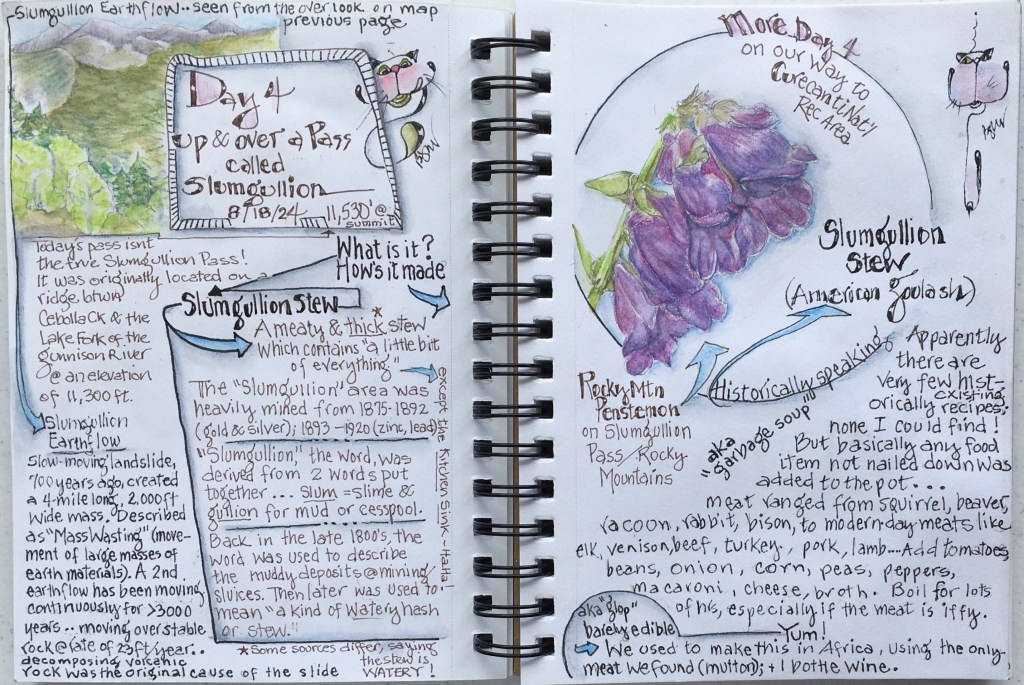 Slumgullion Earthflow.. seen from the overlook on map
previous page
Day 4
up & over a Pass
called
Slumgullion
8/18/24
11,530' @
summit
Today's pass isn't
the true Slumgullion Pass!
It was originally located on a
ridge btwn
Cebolla Ck & the
Lake Fork of the
Gunnison River
@ an elevation
of 11,300 ft.
Slumgullion
Earthflow
Slow-moving landslide,
700 years ago, created
a 4-mile long, 2,000ft
wide mass. Described
as "Mass Wasting" (move-
ment of large masses of
earth materials). A 2nd
earthflow has been moving
continuously for >3000
years.. moving over stable
rock @ rate of 23ft/year..
decomposing volcanic
rock was the original cause of the slide
What is it?
How's it made
Slumgullion Stew
A meaty & thick* stew
which contains "a little bit
of everything"
except the Kitchen Sink - Ha Ha!
The "Slumgullion" area was
heavily mined from 1875-1892
(gold & silver); 1893-1920 (zinc, lead)
"Slumgullion," the word, was
derived from 2 words put
together... Slum = slime &
gullion for mud or cesspool.
Back in the late 1800's, the
word was used to describe
the muddy deposits @ mining
sluices. Then later was used to
mean "a kind of watery hash
or stew."
*Some sources differ, saying
the stew is
WATERY!
More Day 4
on our way to
Curecanti Nat'l
Rec Area
Rocky Mtn
Penstemon
on Slumgullion
Pass/Rocky
Mountains
Slumgullion
Stew
(American goulash)
Historically speaking,
"aka
garbage soup"
Apparently
there are
very few
existing
hist-
orically recipes;
none I could find!
But basically any food
item not nailed down was
added to the pot...
meat ranged from squirrel, beaver,
racoon, rabbit, bison, to modern day meats like
elk, venison, beef, turkey, pork, lamb.... Add tomatoes,
beans, onion, corn, peas, peppers,
macaroni, cheese, broth. Boil for lots
of hrs, especially if the meat is iffy.
aka "glop"
barely edible
Yum!
We used to make this in Africa, using the only
meat we found (mutton); + 1 bottle wine..